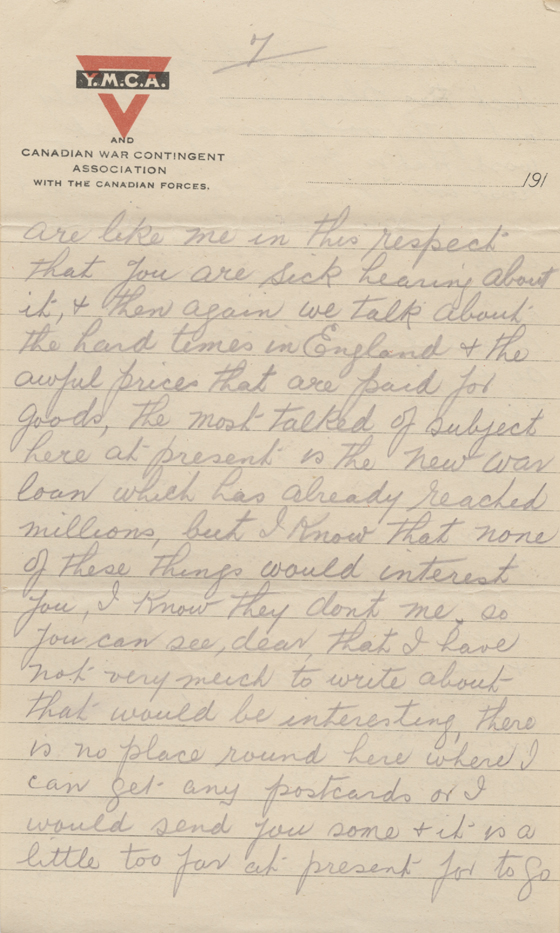 7
Y.M.C.A.
AND
CANADIAN WAR CONTINGENT
ASSOCIATION
WITH THE CANADIAN FORCES.
191
are like me in this respect
that you are sick hearing about
it, & then again we talk about
the hard times in England & the
awful prices that are paid for
goods, the most talked of subject
here at present is the new war
loan which has already reached
millions, but I know that none
of these things would interest
you, I know they dont me, so
you can see, dear, that I have
not very much to write about
that would be interesting, there
is no place round here where I
can get any postcards or I
would send you some & it is a
little too far at present for to go